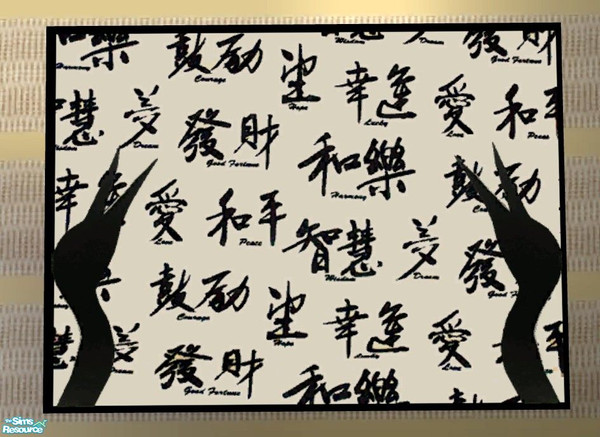 和樂
Harmony
鼓励
Courage
望
Hope
智慧
Wisdom
幸運
Lucky
夢
Dream
發財
Good Fortune
愛
Love
和平
Peace
智慧
Wisdom
夢
Dream
發財
Good Fortune
和樂
Harmony
鼓励
幸
愛
Love
和平
Peace
智慧
Wisdom
夢
Dream
發
Good Fortune
鼓励
Courage
望
Hope
幸運
Lucky
愛
Love
平
Peace
夢
Dream
發財
Good Fortune
和樂
The Sims Resource